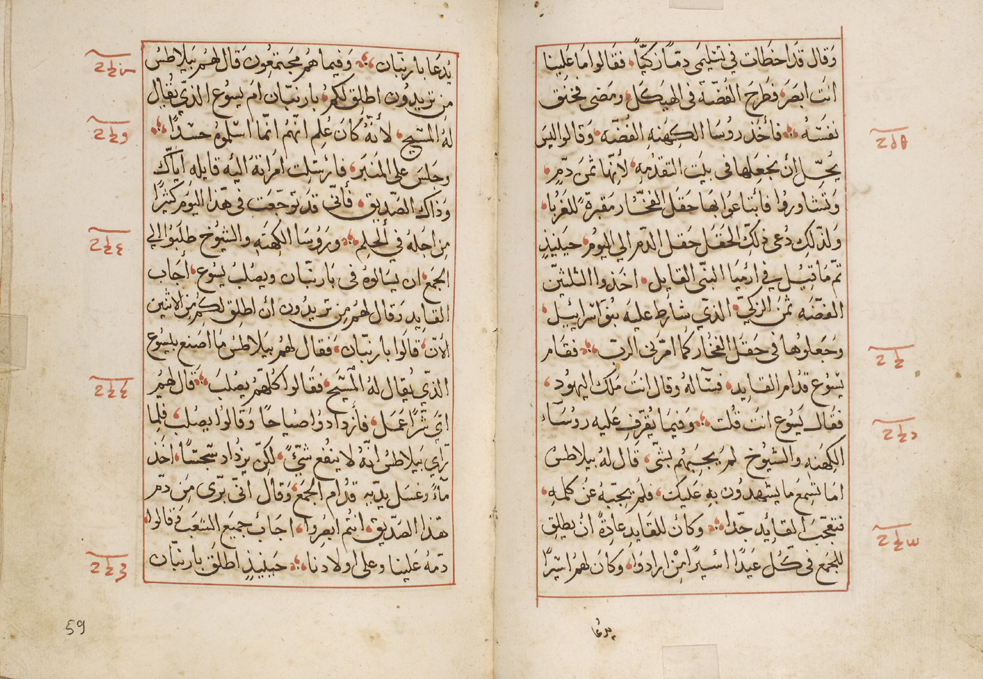 وقال قد اخطات في تسليمي دمًا زكيًّا فقالوا ما علينا
انت ابصر فطرح الفضة في الهيكل ومضى فخنق
نفسه فاخذ روسا الكهنه الفضه وقالوا ليس
يحل ان نجعلها في بيت التقدمه لانها ثمن دم
وتشاوروا فابتاعوا بها حقل الفخار مقبرة للغربا
ولذلك دعى ذلك الحقل حقل الدم الى اليوم حينيذٍ
تم ما قيل في ارميا النبى القايل اخذوا الثلثين
الفضه ثمن الزكي الذي شارط عليه بنو اسراييل
وجعلوها في حقل الفخار كما امرني الرب فقام
يسوع قدام القايد فساله وقال انت ملك اليهود
فقال يسوع انت قلت وفيما يقرف عليه روساء
الكهنه والشيوخ لم يجبهم بشى قال له بيلاطس
اما تسمع ما يشهدون به عليك فلم يجبه عن كلمه
فتعجب القايد جدا وكان للقايد عادة ان يطلق
للجمع في كل عيد اسيرًا من ارادوا وكان لهم اسيرًا
يدعا
يدعا باربّان وفيما هم مجتمعون قال لهم بيلاطس
من تريدون اطلق لكم باربّان ام يسوع الذي يقال
له المسيح لانه كان علم انهم انما اسلموه حسدًا
وجلس على المنبر فارسلت امراته اليه قايله اياك
وذاك الصديق فأني قد توجعت في هذا اليوم كثيرًا
من اجله في الحلم وروسا الكهنه والشيوخ طلبوا الي
الجمع ان يسالوه في باربّان ويصلب يسوع اجاب
القايد وقال لهم من تريدون ان اطلق لكم من الاثنين
الان قالوا باربّان فقال لهم بيلاطس ما اصنع بيسوع
الذي يقال له المسيح فقالوا كلهم يصلب قال لهم
اي شرًّا عمل فازدادوا صياحًا وقالوا يصلب فلما
راي بيلاطس انه لا ينفع شيً لكن يزداد سجسًا اخذ
مآء وغسل يديه قدام الجمع وقال انى برى من دم
هذا الصديق انتم ابصروا اجاب جميع الشعب وقالوا
دمه علينا وعلى اولادنا حينيذٍ اطلق باربّان
59